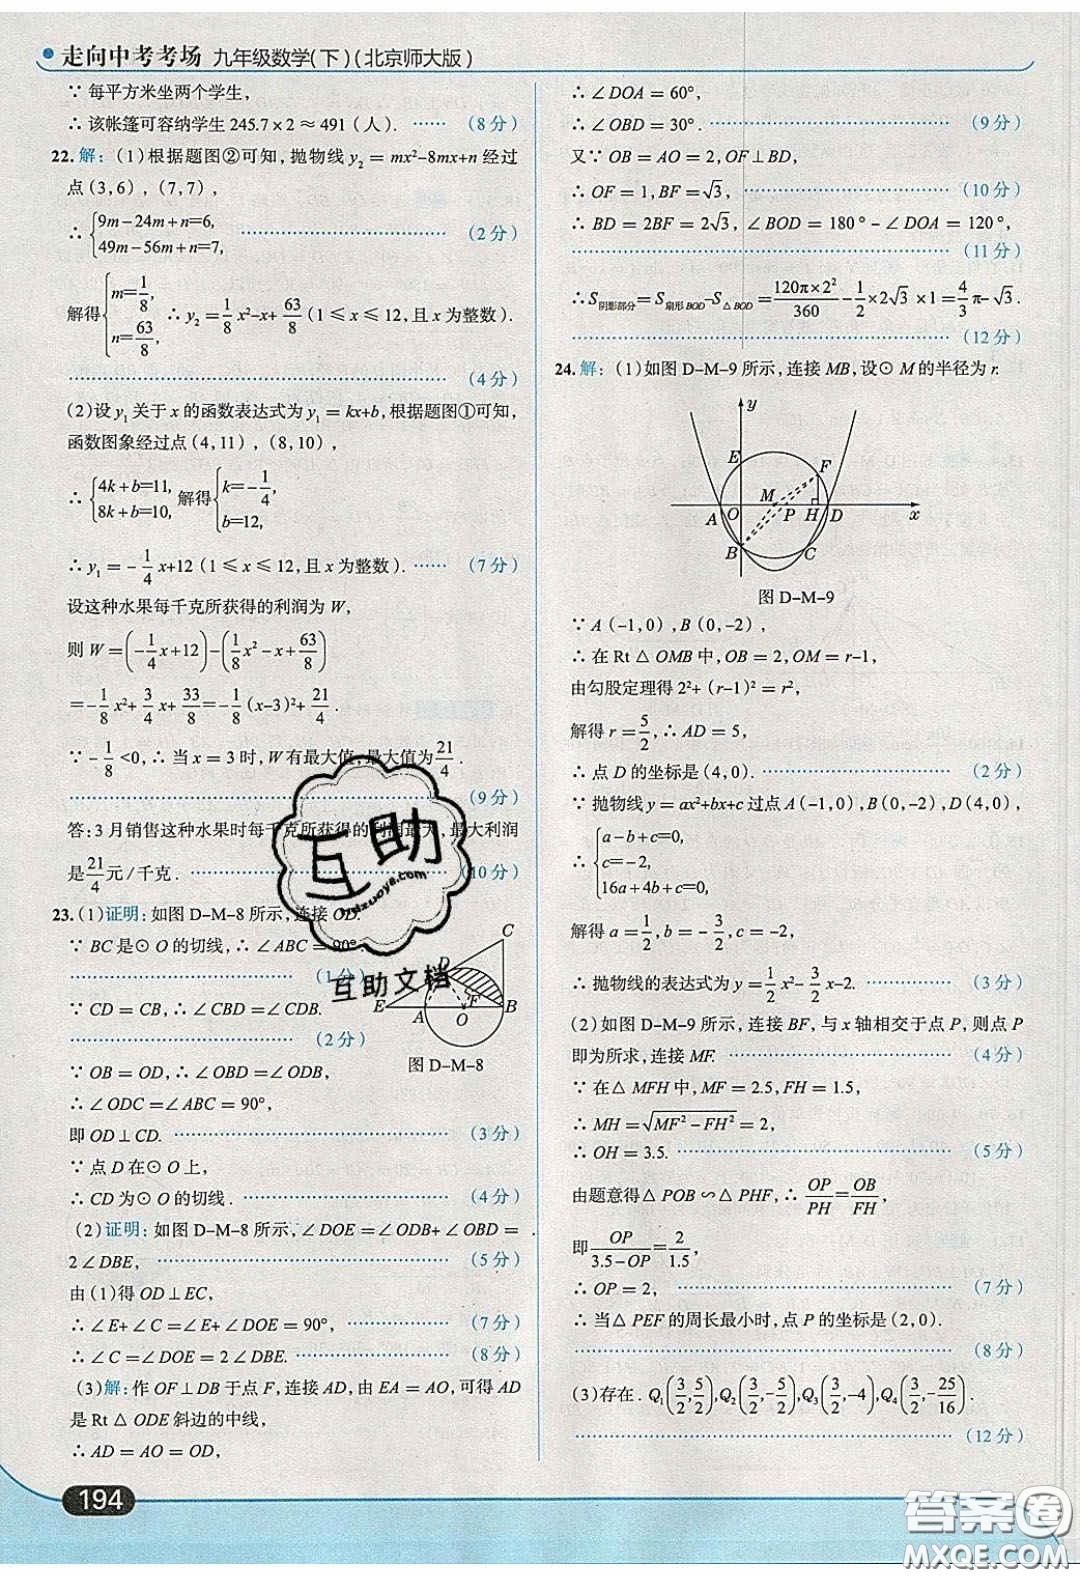 走向中考考场 九年级数学(下)(北京师大版)
∵ 每平方米坐两个学生,
∴ 该帐篷可容纳学生 245.7×2≈491(人). ……(8分)
22.解:(1)根据题图②可知,抛物线 y₂=mx²-8mx+n 经过
点(3,6),(7,7),
∴ {9m-24m+n=6,
49m-56m+n=7, ……(2分)
解得{m=1/8,
n=63/8, ∴ y₂=1/8x²-x+63/8(1≤x≤12,且 x 为整数).
……(4分)
(2)设 y₁ 关于 x 的函数表达式为 y₁=kx+b,根据题图①可知,
函数图象经过点(4,11),(8,10),
∴ {4k+b=11,
8k+b=10, 解得{k=-1/4,
b=12,
∴ y₁=-1/4x+12(1≤x≤12,且 x 为整数). ……(7分)
设这种水果每千克所获得的利润为 W,
则 W=(-1/4x+12)-(1/8x²-x+63/8)
=-1/8x²+3/4x+33/8=-1/8(x-3)²+21/4.
∵ -1/8<0,∴ 当 x=3 时,W 有最大值,最大值为21/4.
……(9分)
答:3月销售这种水果时每千克所获得的利润最大,最大利润
是21/4元/千克. ……(10分)
23.(1)证明:如图 D-M-8 所示,连接 OD.
∵ BC 是⊙O 的切线,∴ ∠ABC=90°.
……(1分)
∵ CD=CB,∴ ∠CBD=∠CDB.
……(2分)
∵ OB=OD,∴ ∠OBD=∠ODB,
∴ ∠ODC=∠ABC=90°,
即 OD⊥CD. ……(3分)
∵ 点 D 在⊙O 上,
∴ CD 为⊙O 的切线. ……(4分)
C
D
E
A
O
F
B
图 D-M-8
(2)证明:如图 D-M-8 所示,∠DOE=∠ODB+∠OBD=
2∠DBE, ……(5分)
由(1)得 OD⊥EC,
∴ ∠E+∠C=∠E+∠DOE=90°, ……(7分)
∴ ∠C=∠DOE=2∠DBE. ……(8分)
(3)解:作 OF⊥DB 于点 F,连接 AD,由 EA=AO,可得 AD
是 Rt△ODE 斜边的中线,
∴ AD=AO=OD,
∴ ∠DOA=60°,
∴ ∠OBD=30°. ……(9分)
又∵ OB=AO=2,OF⊥BD,
∴ OF=1,BF=√3, ……(10分)
∴ BD=2BF=2√3,∠BOD=180°-∠DOA=120°,
……(11分)
∴S阴影部分=S扇形BOD-S△BOD=120π×2²/360-1/2×2√3×1=4/3π-√3.
……(12分)
24.解:(1)如图 D-M-9 所示,连接 MB,设⊙M 的半径为 r.
y
E
F
M
A
O
P
H
D
x
B
C
图 D-M-9
∵ A(-1,0),B(0,-2),
∴ 在 Rt△OMB 中,OB=2,OM=r-1,
由勾股定理得 2²+(r-1)²=r²,
解得 r=5/2,∴ AD=5,
∴ 点 D 的坐标是(4,0). ……(2分)
∵ 抛物线 y=ax²+bx+c 过点 A(-1,0),B(0,-2),D(4,0),
∴ {a-b+c=0,
c=-2,
16a+4b+c=0,
解得 a=1/2,b=-3/2,c=-2,
∴ 抛物线的表达式为 y=1/2x²-3/2x-2. ……(3分)
(2)如图 D-M-9 所示,连接 BF,与 x 轴相交于点 P,则点 P
即为所求,连接 MF. ……(4分)
∵ 在△MFH 中,MF=2.5,FH=1.5,
∴ MH=√(MF²-FH²)=2,
∴ OH=3.5. ……(5分)
由题意得△POB∽△PHF,∴ OP/PH=OB/FH,
即OP/(3.5-OP)=2/1.5,
∴ OP=2, ……(7分)
∴ 当△PEF 的周长最小时,点 P 的坐标是(2,0).
……(8分)
(3)存在. Q₁(3/2,5/2),Q₂(3/2,-5/2),Q₃(3/2,-4),Q₄(3/2,-25/16).
……(12分)
194
互助
huzuoya.com
互助文档
答案圈
MXQE.COM